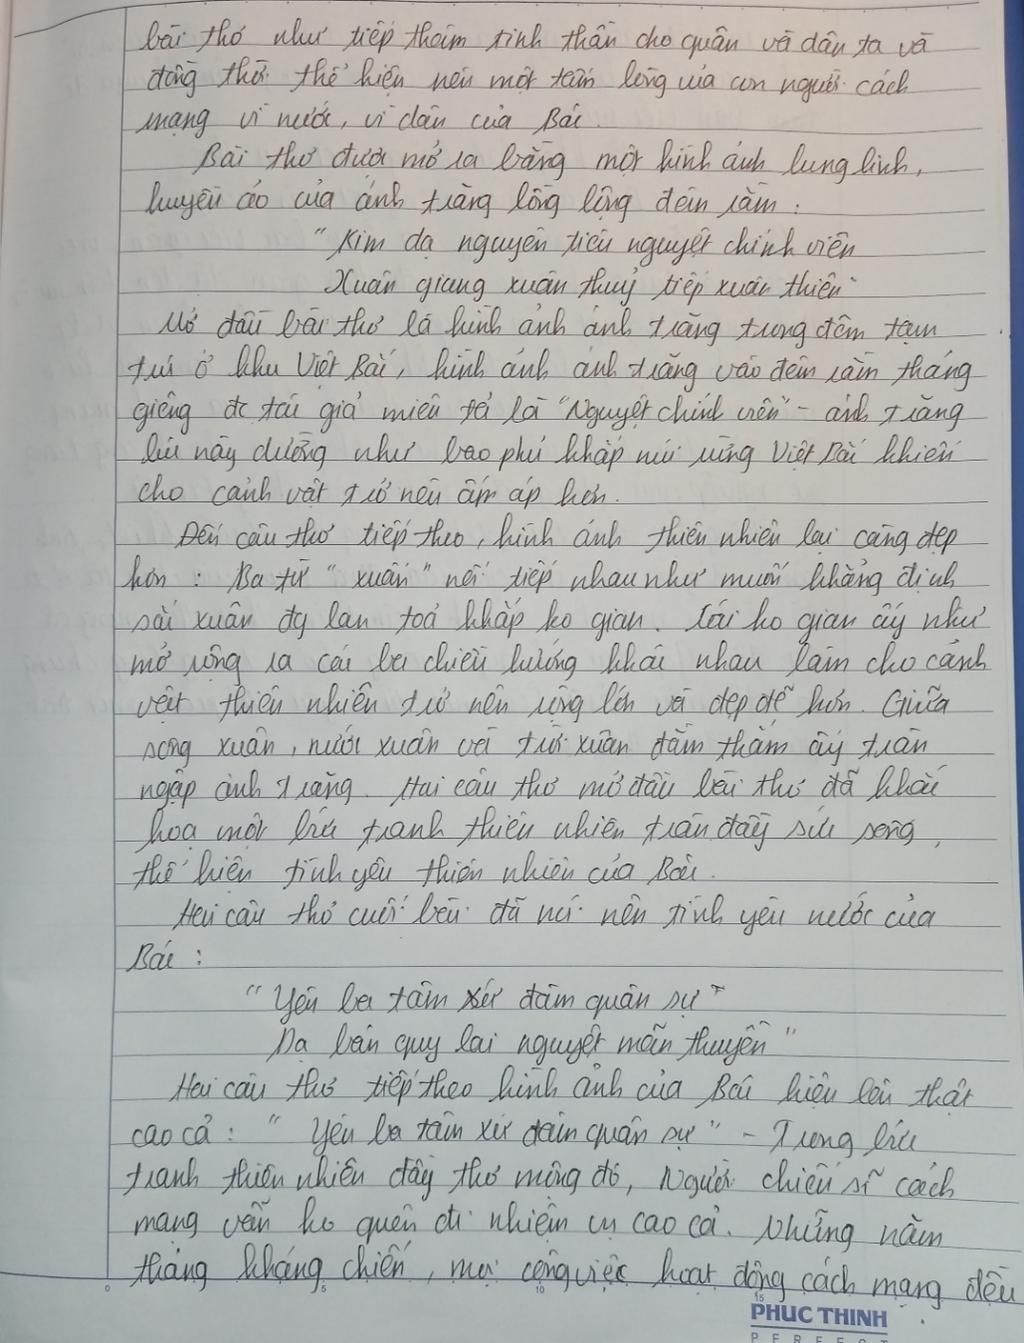 bài thơ như tiếp thêm tinh thần cho quân và dân ta và
đồng thời thể hiện nên một tấm lòng của con người cách
mạng vì nước, vì dân của Bác.
Bài thơ được mở ra bằng một hình ảnh lung linh,
huyền ảo của ánh trăng lồng lộng đêm rằm:
"Kim dạ nguyên tiêu nguyệt chính viên
Xuân giang xuân thuỷ tiếp xuân thiên"
Mở đầu bài thơ là hình ảnh ánh trăng trong đêm tạm
trú ở khu Việt Bắc, hình ảnh ánh trăng vào đêm rằm tháng
giêng đc tác giả miêu tả là "Nguyệt chính viên" - ánh trăng
lúc này dường như bao phủ khắp núi rừng Việt Bắc khiến
cho cảnh vật trở nên ấm áp hơn.
Đến câu thơ tiếp theo, hình ảnh thiên nhiên lại càng đẹp
hơn: Ba từ "xuân" nối tiếp nhau như muốn khẳng định
sắc xuân đg lan toả khắp ko gian. Cái ko gian ấy như
mở rộng ra cái ba chiều hướng khác nhau làm cho cảnh
vật thiên nhiên trở nên rộng lớn và đẹp đẽ hơn. Giữa
sông xuân, nước xuân và trời xuân đằm thắm ấy tràn
ngập ánh trăng. Hai câu thơ mở đầu bài thơ đã khắc
hoạ một bức tranh thiên nhiên tràn đầy sức sống,
thể hiện tình yêu thiên nhiên của Bác.
Hai câu thơ cuối bài đã nói nên tình yêu nước của
Bác:
"Yên ba thâm xứ đàm quân sự
Dạ bán quy lai nguyệt mãn thuyền"
Hai câu thơ tiếp theo hình ảnh của Bác hiện lên thật
cao cả: "Yên ba tâm xứ đàm quân sự" - Trong bức
tranh thiên nhiên đầy thơ mộng đó, Người chiến sĩ cách
mạng vẫn ko quên đi nhiệm vụ cao cả. Những năm
tháng kháng chiến, mọi công việc hoạt động cách mạng đều
0 5 10 15
PHUC THINH
PERFECT